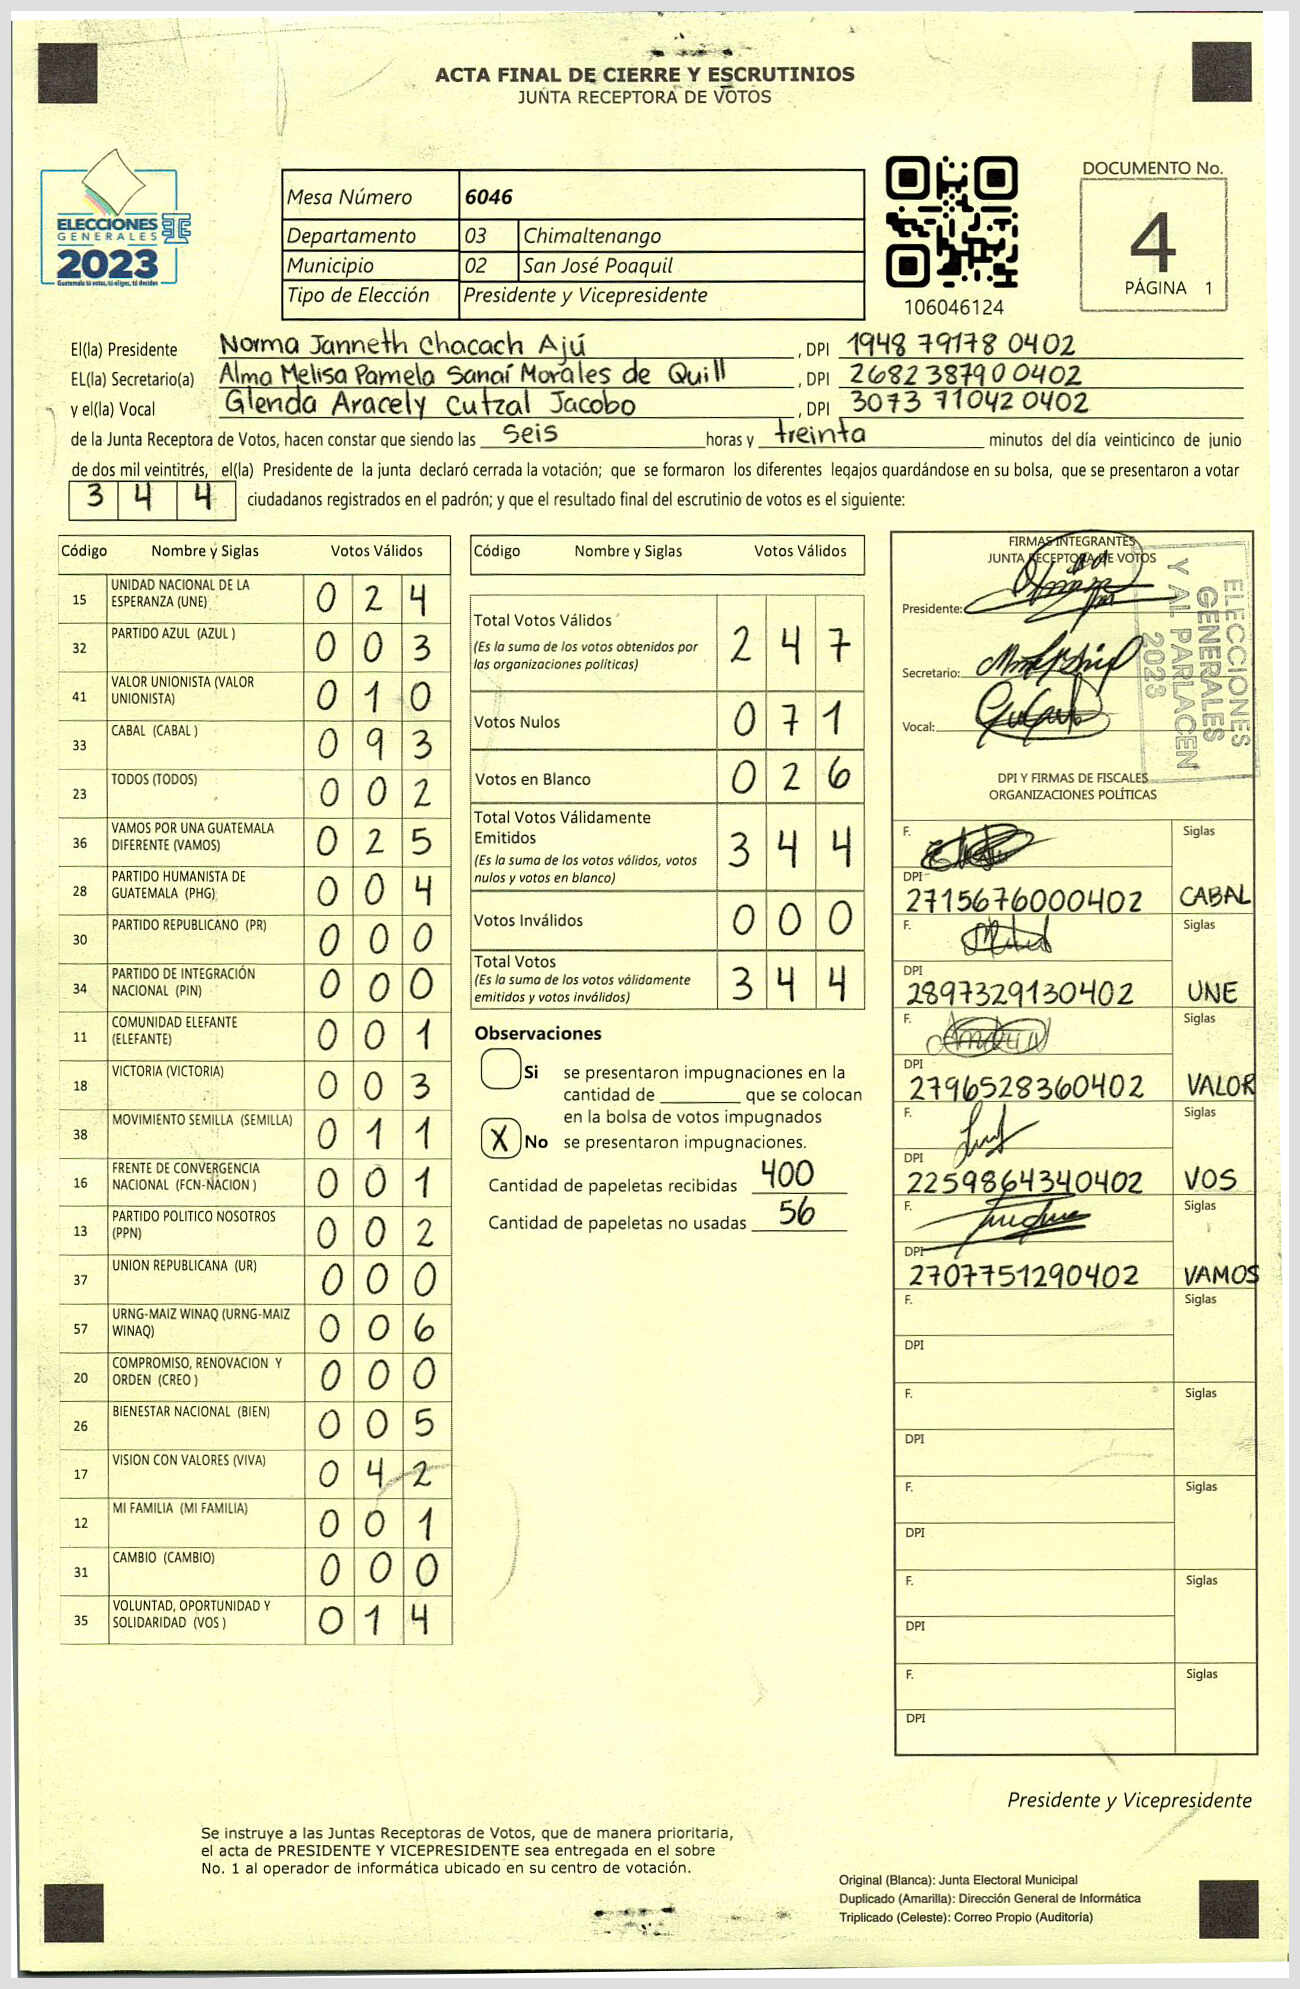 ACTA FINAL DE CIERRE Y ESCRUTINIOS
JUNTA RECEPTORA DE VOTOS
ELECCIONES
GENERALES
2023
Guatemala tú votas, tú eliges, tú decides
Mesa Número 6046
Departamento 03 Chimaltenango
Municipio 02 San José Poaquil
Tipo de Elección Presidente y Vicepresidente
106046124
DOCUMENTO No.
4
PÁGINA 1
El(la) Presidente Norma Janneth Chacach Ajú, DPI 1948 79178 0402
EL(la) Secretario(a) Alma Melisa Pamela Sanaí Morales de Quill, DPI 2682 38790 0402
y el(la) Vocal Glenda Aracely Cutzal Jacobo, DPI 3073 71042 0402
de la Junta Receptora de Votos, hacen constar que siendo las seis horas y treinta minutos del día veinticinco de junio
de dos mil veintitrés, el(la) Presidente de la junta declaró cerrada la votación; que se formaron los diferentes legajos guardándose en su bolsa, que se presentaron a votar
3 4 4 ciudadanos registrados en el padrón; y que el resultado final del escrutinio de votos es el siguiente:
Código Nombre y Siglas Votos Válidos
15 UNIDAD NACIONAL DE LA ESPERANZA (UNE) 0 2 4
32 PARTIDO AZUL (AZUL ) 0 0 3
41 VALOR UNIONISTA (VALOR UNIONISTA) 0 1 0
33 CABAL (CABAL ) 0 9 3
23 TODOS (TODOS) 0 0 2
36 VAMOS POR UNA GUATEMALA DIFERENTE (VAMOS) 0 2 5
28 PARTIDO HUMANISTA DE GUATEMALA (PHG) 0 0 4
30 PARTIDO REPUBLICANO (PR) 0 0 0
34 PARTIDO DE INTEGRACIÓN NACIONAL (PIN) 0 0 0
11 COMUNIDAD ELEFANTE (ELEFANTE) 0 0 1
18 VICTORIA (VICTORIA) 0 0 3
38 MOVIMIENTO SEMILLA (SEMILLA) 0 1 1
16 FRENTE DE CONVERGENCIA NACIONAL (FCN-NACION ) 0 0 1
13 PARTIDO POLITICO NOSOTROS (PPN) 0 0 2
37 UNION REPUBLICANA (UR) 0 0 0
57 URNG-MAIZ WINAQ (URNG-MAIZ WINAQ) 0 0 6
20 COMPROMISO, RENOVACION Y ORDEN (CREO ) 0 0 0
26 BIENESTAR NACIONAL (BIEN) 0 0 5
17 VISION CON VALORES (VIVA) 0 4 2
12 MI FAMILIA (MI FAMILIA) 0 0 1
31 CAMBIO (CAMBIO) 0 0 0
35 VOLUNTAD, OPORTUNIDAD Y SOLIDARIDAD (VOS ) 0 1 4
Código Nombre y Siglas Votos Válidos
Total Votos Válidos 2 4 7
(Es la suma de los votos obtenidos por
las organizaciones políticas)
Votos Nulos 0 7 1
Votos en Blanco 0 2 6
Total Votos Válidamente
Emitidos 3 4 4
(Es la suma de los votos válidos, votos
nulos y votos en blanco)
Votos Inválidos 0 0 0
Total Votos 3 4 4
(Es la suma de los votos válidamente
emitidos y votos inválidos)
Observaciones
Si se presentaron impugnaciones en la
cantidad de ________ que se colocan
en la bolsa de votos impugnados
X No se presentaron impugnaciones.
Cantidad de papeletas recibidas 400
Cantidad de papeletas no usadas 56
FIRMAS INTEGRANTES
JUNTA RECEPTORA DE VOTOS
Presidente:
Secretario:
Vocal:
ELECCIONES
GENERALES
Y AL PARLACEN
2023
DPI Y FIRMAS DE FISCALES
ORGANIZACIONES POLÍTICAS
F. Siglas
DPI 2715676000402 CABAL
F. Siglas
DPI 2897329130402 UNE
F. Siglas
DPI 2796528360402 VALOR
F. Siglas
DPI 2259864340402 VOS
F. Siglas
DPI 2707751290402 VAMOS
F. Siglas
DPI
F. Siglas
DPI
F. Siglas
DPI
F. Siglas
DPI
F. Siglas
DPI
Presidente y Vicepresidente
Se instruye a las Juntas Receptoras de Votos, que de manera prioritaria,
el acta de PRESIDENTE Y VICEPRESIDENTE sea entregada en el sobre
No. 1 al operador de informática ubicado en su centro de votación.
Original (Blanca): Junta Electoral Municipal
Duplicado (Amarilla): Dirección General de Informática
Triplicado (Celeste): Correo Propio (Auditoría)